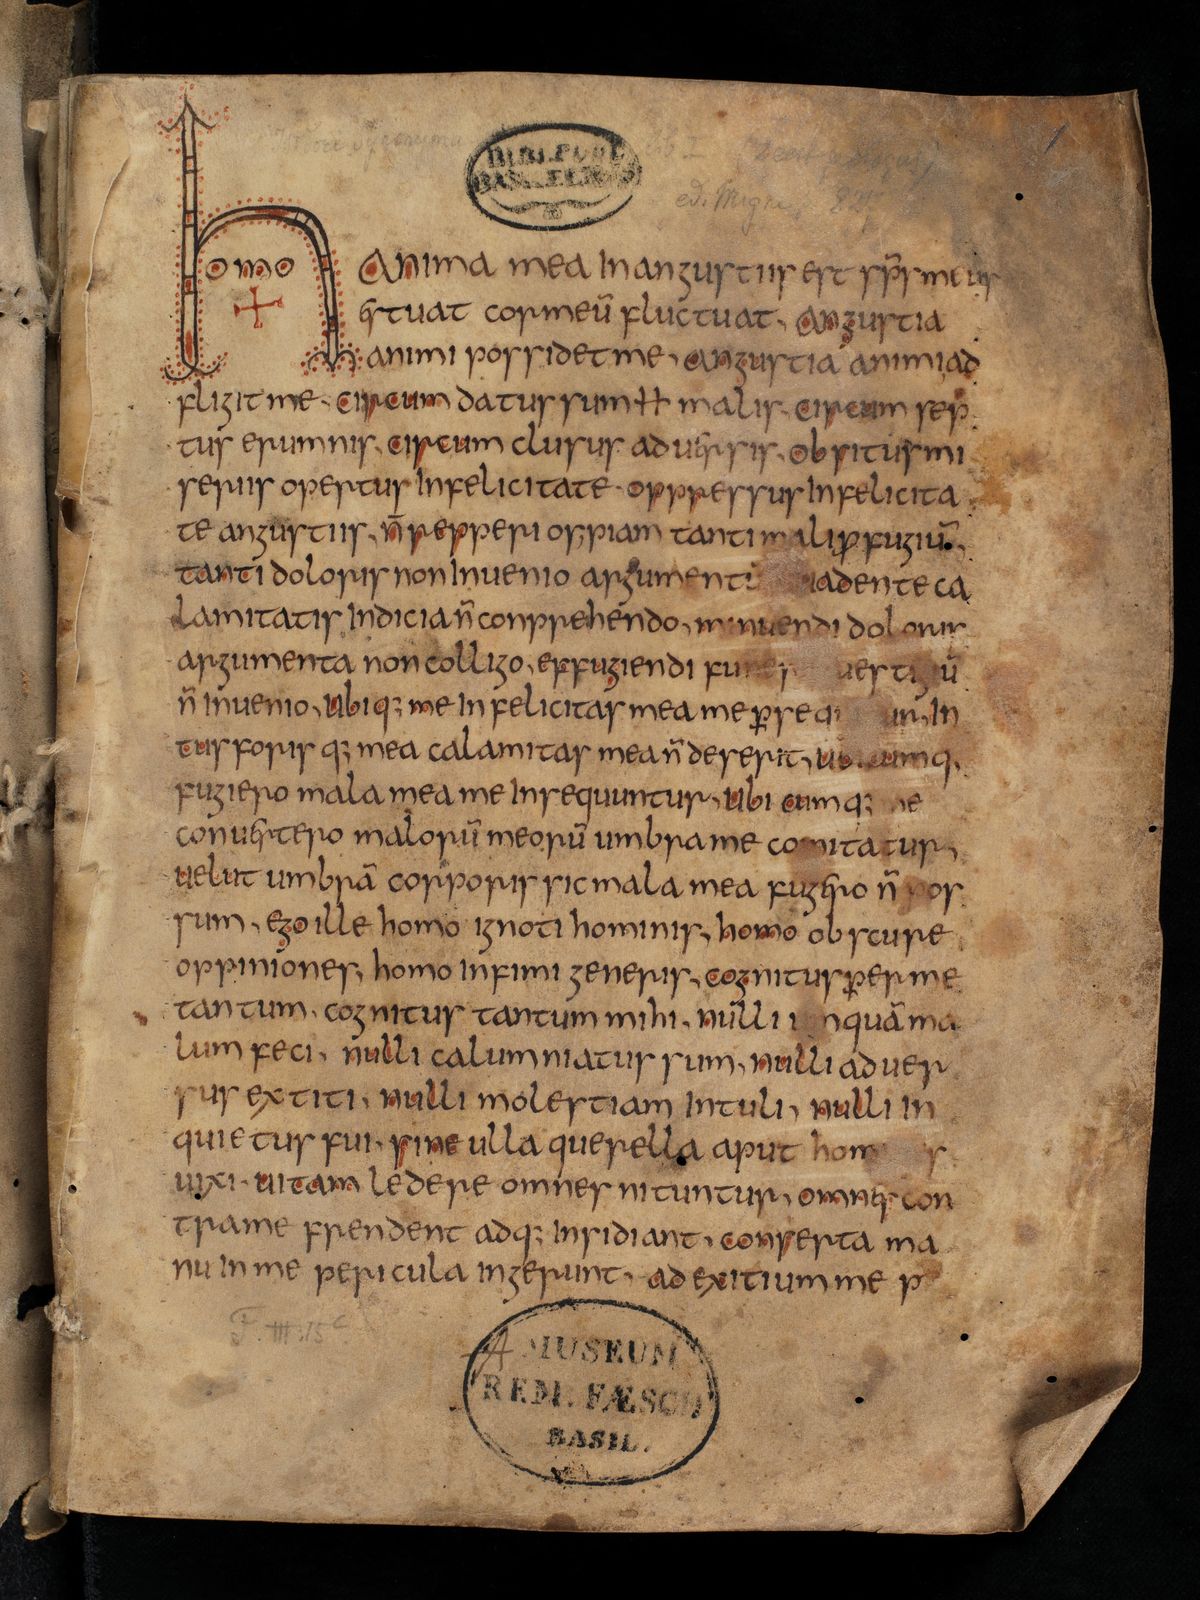 BIBL. PUBL.
BASILEENSIS
ed. Migne
1
homo Anima mea in angustiis est sp̄s meus
estuat cor meū fluctuat, Angustia
animi possidet me, Angustia animi ad
fligit me, circum datus sum ħ malis, circum sep
tus erumnis, circum clusus aduersis, obsitus mi
seriis opertus infelicitate oppressus infelicita
te angustiis, n̄ repperi uspiam tanti mali ꝓfugiū,
tanti doloris non inuenio argumenti adente ca
lamitatis indicia n̄ conprehendo, minuendi doloris
argumenta non colligo, effugiendi uestigiū
n̄ inuenio, ubiq; me infelicitas mea me ꝑsequi in
tus foris q; mea calamitas mea n̄ deserit, ubicumq,
fugiero mala mea me insequuntur, ubi cumq; me
conuertero malorū meorū umbra me comitatur,
uelut umbrā corporis sic mala mea fugero n̄ pos
sum, ego ille homo ignoti hominis, homo obscure
oppiniones, homo infimi generis, cognitus ꝑer me
tantum, cognitus tantum mihi, nulli umquā ma
lum feci, nulli calumniatus sum, nulli aduer
sus extiti, nulli molestiam intuli, nulli in
quietus fui, sine ulla querella aput hom s
uixi, uitam ledere omnes nituntur, omnes con
tra me frendent adq; insidiant, conserta ma
nu in me pericula ingerunt, ad exitium me p
F. III. 15c
A MUSEUM
REM. FÆSCH
BASIL.